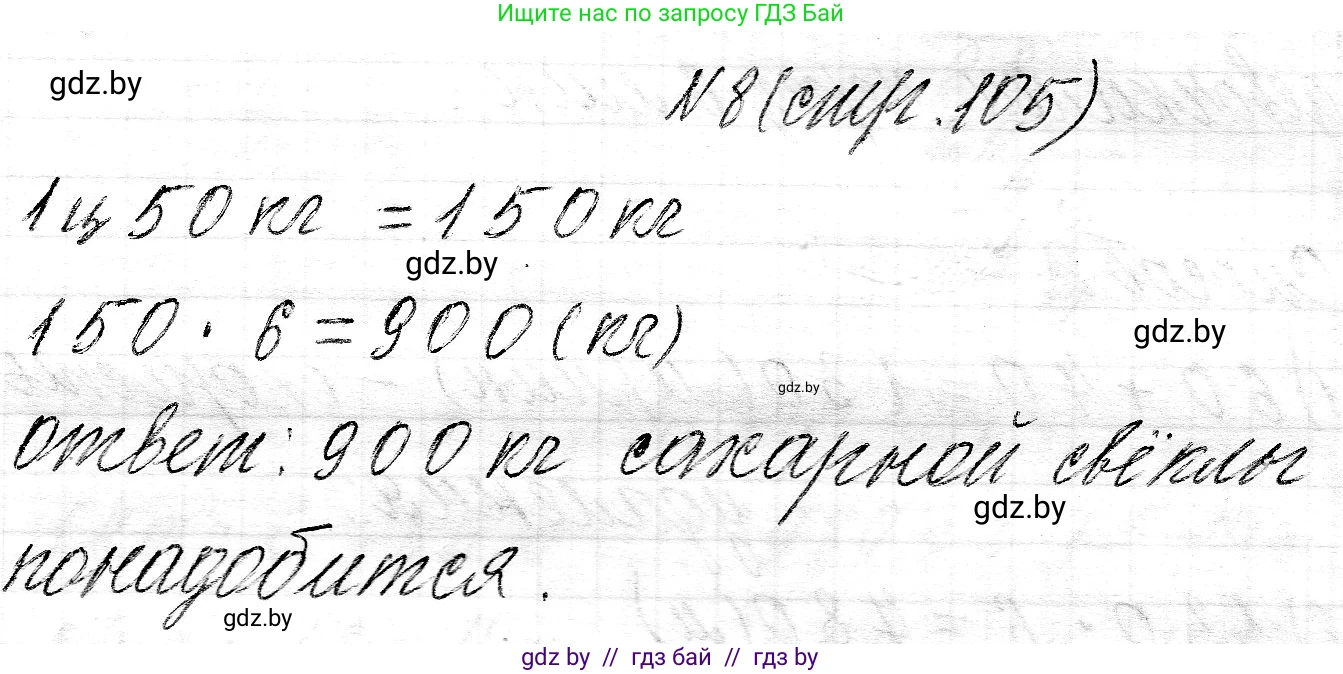 Ищите нас по запросу ГДЗ Бай
gdz.by
№8 (стр. 105)
1ц 50 кг = 150 кг
gdz.by
150 · 6 = 900 (кг)
gdz.by
gdz.by
ответ: 900 кг сахарной свёклы
gdz.by
понадобится.
gdz.by
gdz by // гдз бай // гдз by